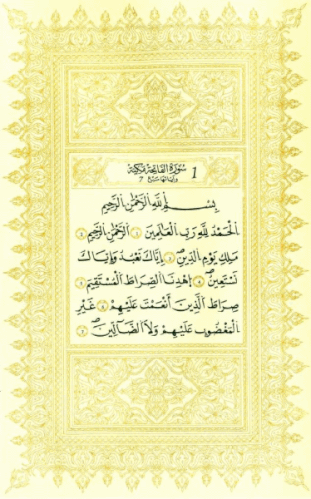 1 سُورَةُ الفَاتِحَةِ مَكِّيَّة
وَآيَاتُهَا سَبْعٌ 7
بِسْمِ اللَّهِ الرَّحْمَٰنِ الرَّحِيمِ
الْحَمْدُ لِلَّهِ رَبِّ الْعَالَمِينَ ۝ الرَّحْمَٰنِ الرَّحِيمِ ۝
مَالِكِ يَوْمِ الدِّينِ ۝ إِيَّاكَ نَعْبُدُ وَإِيَّاكَ
نَسْتَعِينُ ۝ اهْدِنَا الصِّرَاطَ الْمُسْتَقِيمَ ۝
صِرَاطَ الَّذِينَ أَنْعَمْتَ عَلَيْهِمْ ۝ غَيْرِ
الْمَغْضُوبِ عَلَيْهِمْ وَلَا الضَّالِّينَ ۝